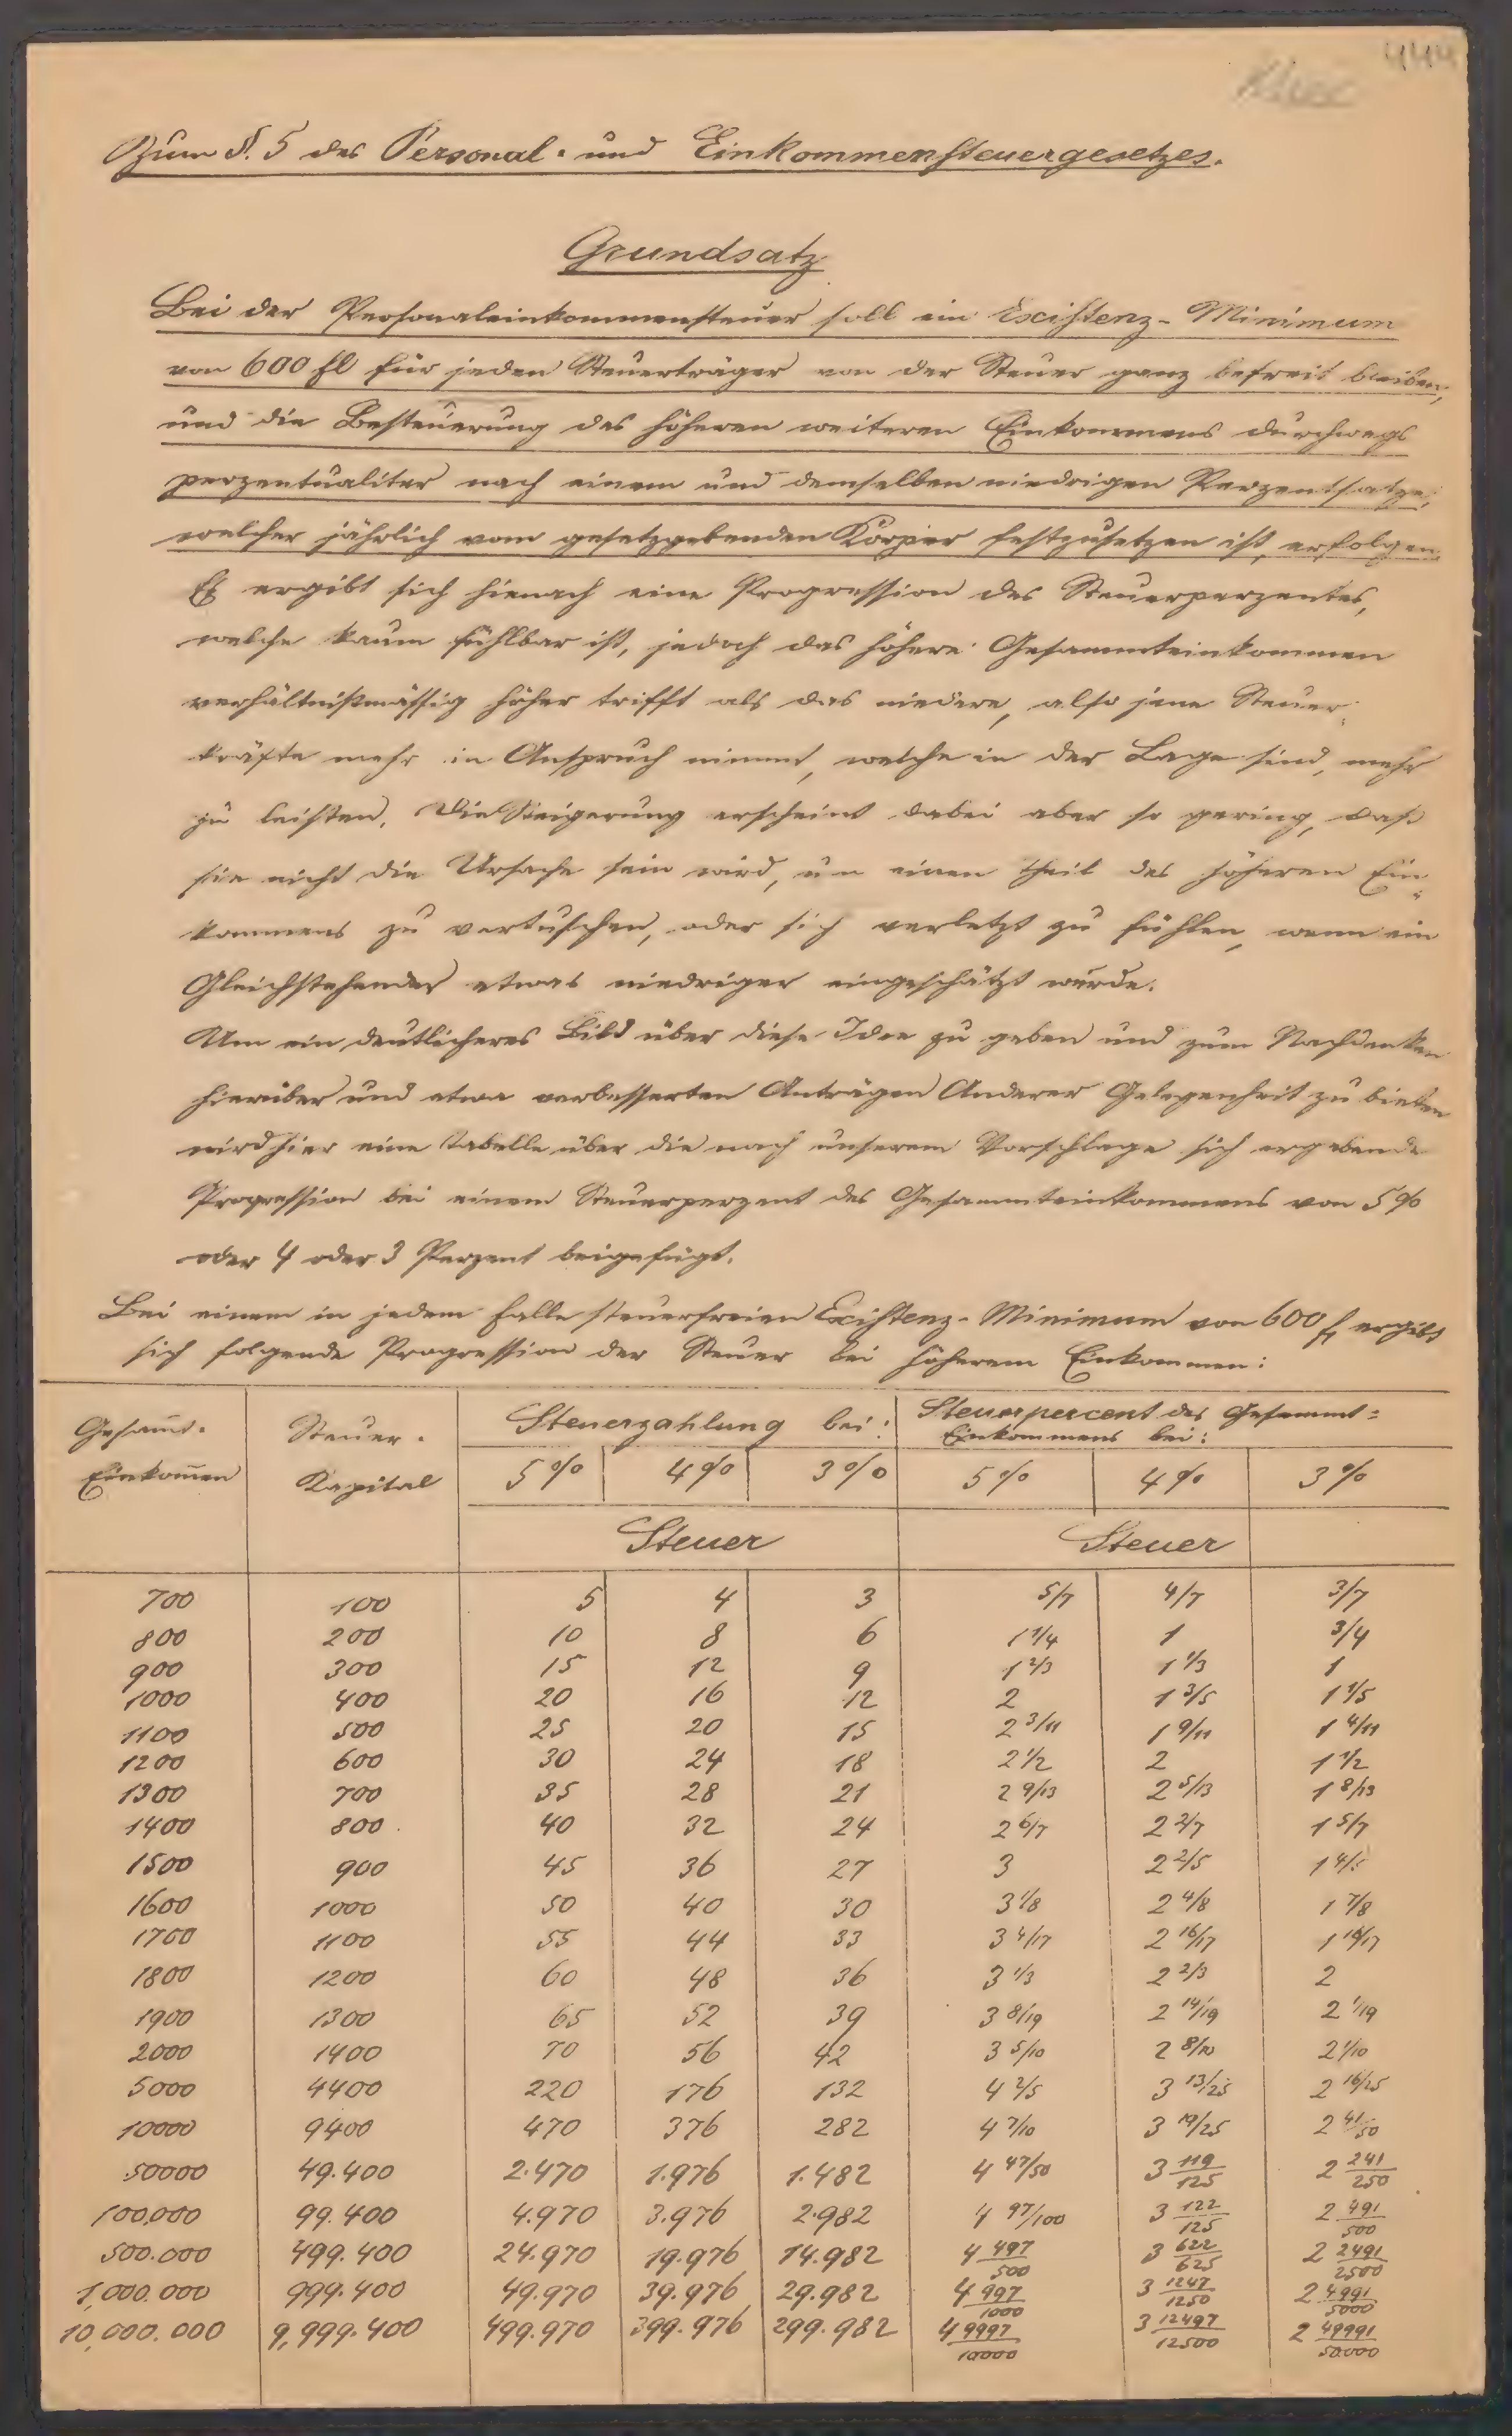 444
Zum §. 5 des Personal- und Einkommensteuergesetzes.
Grundsatz
Bei der Personaleinkommensteuer soll ein Existenz-Minimum
von 600 fl für jeden Steuerträger von der Steuer ganz befreit bleiben,
und die Besteuerung des höheren weiteren Einkommens durchwegs
perzentualiter nach einem und demselben niedrigen Perzentsatze,
welcher jährlich vom gesetzgebenden Körper festzusetzen ist, erfolgen.
Es ergibt sich hienach eine Progression des Steuerperzentes,
welche kaum fühlbar ist, jedoch das höhere Gesammteinkommen
verhältnißmässig höher trifft als das niedere, also jene Steuer-
kräfte mehr in Anspruch nimmt, welche in der Lage sind, mehr
zu leisten. Die Steigerung erscheint dabei aber so gering, daß
sie nicht die Ursache sein wird, um einen Theil des höheren Ein-
kommens zu vertuschen, oder sich verletzt zu fühlen, wenn ein
Gleichstehender etwas niedriger eingeschätzt würde.
Um ein deutlicheres Bild über diese Idee zu geben und zum Nachdenken
hierüber und etwa verbesserten Anträgen Anderer Gelegenheit zu bieten
wird hier eine Tabelle über die nach unserem Vorschlage sich ergebende
Progression bei einem Steuerperzent des Gesammteinkommens von 5 %
oder 4 oder 3 Perzent beigefügt.
Bei einem in jedem Falle steuerfreien Existenz-Minimum von 600 fl ergibt
sich folgende Progression der Steuer bei höherem Einkommen:
Gesammt- Steuer- Steuerzahlung bei: Steuerpercent des Gesammt-
Einkommen Kapital Einkommens bei:
5% 4% 3% 5% 4% 3%
Steuer Steuer
700 100 5 4 3 5/7 4/7 3/7
800 200 10 8 6 1 1/4 1 3/4
900 300 15 12 9 1 2/3 1 1/3 1
1000 400 20 16 12 2 1 3/5 1 1/5
1100 500 25 20 15 2 3/11 1 9/11 1 4/11
1200 600 30 24 18 2 1/2 2 1 1/2
1300 700 35 28 21 2 9/13 2 5/13 1 8/13
1400 800 40 32 24 2 6/7 2 2/7 1 5/7
1500 900 45 36 27 3 2 2/5 1 4/5
1600 1000 50 40 30 3 1/8 2 4/8 1 7/8
1700 1100 55 44 33 3 4/17 2 16/17 1 16/17
1800 1200 60 48 36 3 1/3 2 2/3 2
1900 1300 65 52 39 3 8/19 2 14/19 2 1/19
2000 1400 70 56 42 3 5/10 2 8/10 2 1/10
5000 4400 220 176 132 4 2/5 3 13/25 2 16/25
10000 9400 470 376 282 4 7/10 3 19/25 2 41/50
50000 49.400 2.470 1.976 1.482 4 47/50 3 119/125 2 241/250
100,000 99.400 4.970 3.976 2.982 4 97/100 3 122/125 2 491/500
500.000 499.400 24.970 19.976 14.982 4 497/500 3 622/625 2 2491/2500
1,000.000 999.400 49.970 39.976 29.982 4 997/1000 3 1247/1250 2 4991/5000
10,000.000 9,999.400 499.970 399.976 299.982 4 9997/10000 3 12497/12500 2 49991/50.000